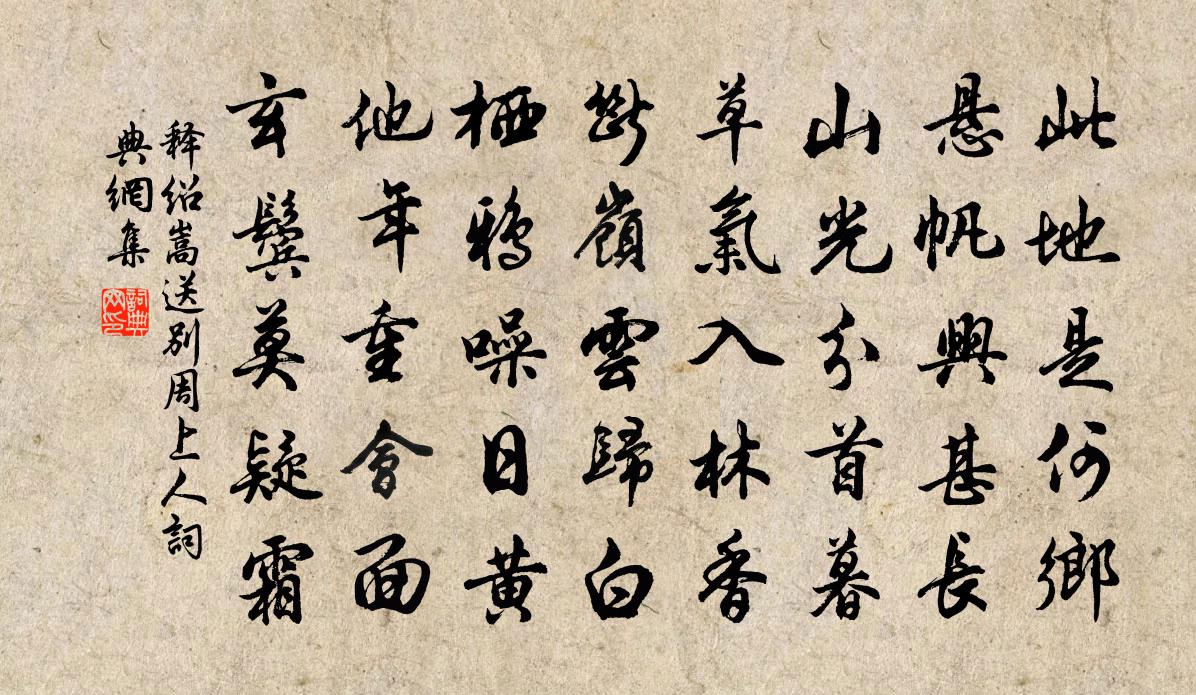 此地是何鄉
悬帆興甚長
山光分首暮
草氣入林香
斷嶺雲歸白
栖鴉噪日黄
他年重會面
玄鬓莫疑霜
释绍嵩送别周上人詞
典網集
詞典
网印